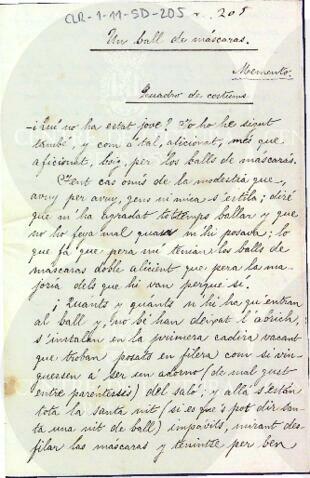 CLR-1-11-SD-205
205
Un ball de máscaras.
Memento.
Quadro de costums
¿Qui no ha estat jove? Jo ho he sigut
també, y com á tal, aficionat, més que
aficionat, boig, per los balls de mascaras.
Fent cás omís de la modestia que,
avuy per avuy, gens ni mica s'estila; diré
que m'ha agradat totstemps ballar y que
no ho feya mal quan m'hi posava; lo
que fá que pera mí tenian los balls de
mascaras doble alicient que pera la ma-
joria dels que hi van perque sí.
¡Quánts y quánts n'hi ha qu'entran
al ball y, no bé han deixat l'abrich,
s'instalan en la primera cadira vacant
que troban posats en filera com si vin-
guessen á ser un adorno (de mal gust
entre paréntesis) del saló; y allá s'están
tota la santa nit (si es que's pot dir san-
ta una nit de ball) impávits, mirant des-
filar las máscaras y tenintse per ben